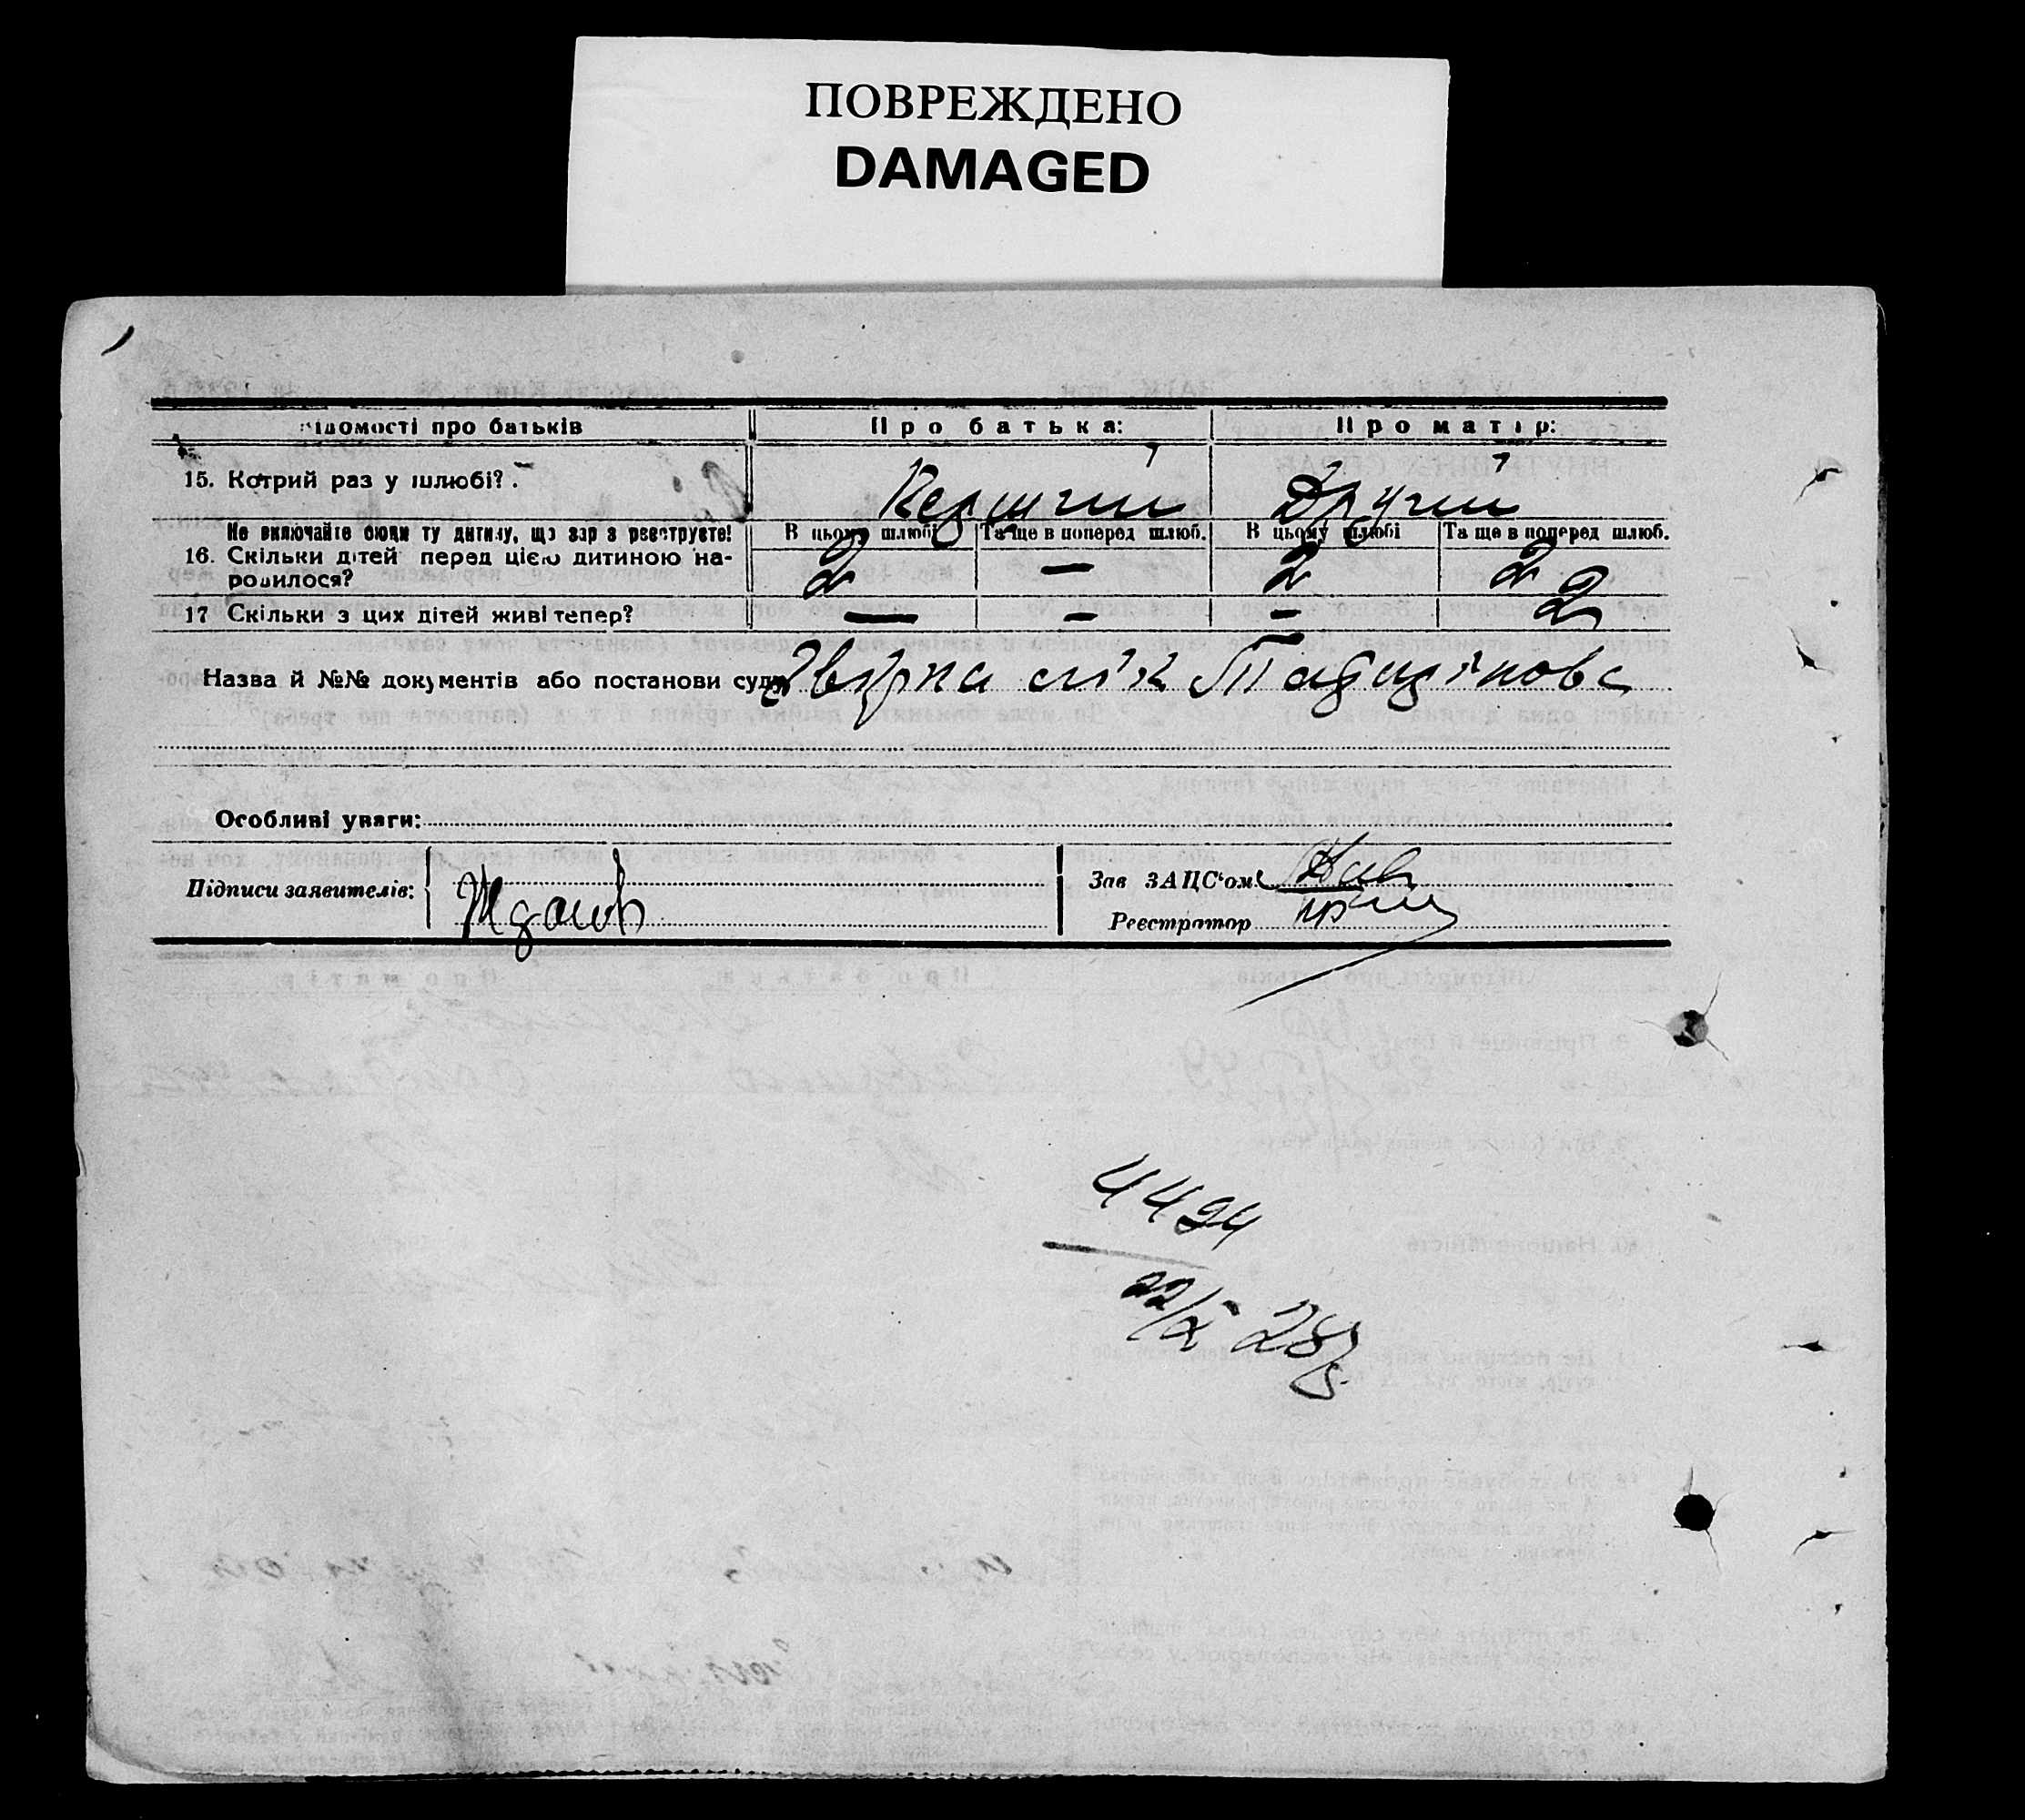 ПОВРЕЖДЕНО
DAMAGED
ідомості про батьків Про батька: Про матір:
15. Котрий раз у шлюбі? Перший Другий
Не включайте сюди ту дитину, що зар з реєструєте! В цьому шлюбі Та ще в поперед шлюб. В цьому шлюбі Та ще в поперед шлюб.
16. Скільки дітей перед цією дитиною на- 2 — 2 2
родилося?
17 Скільки з цих дітей живі тепер? — — — 2
Назва й №№ документів або постанови суду
Особливі уваги:
Підписи заявителів: Жданов Зав ЗАЦС'ом
Реєстратор
4494
22/X 28